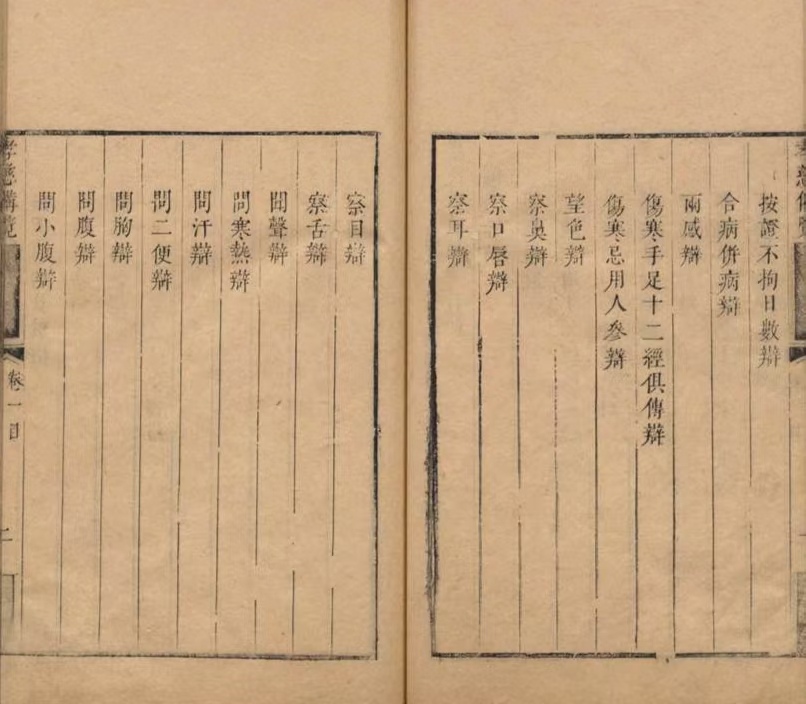 按證不拘日數辯
合病併病辯
兩感辯
傷寒手足十二經俱傳辯
傷寒忌用人參辯
望色辯
察鼻辯
察口唇辯
察耳辯
察目辯
察舌辯
聞聲辯
問寒熱辯
問汗辯
問二便辯
問胸辯
問腹辯
問小腹辯
孝慈備覽
卷一目
二